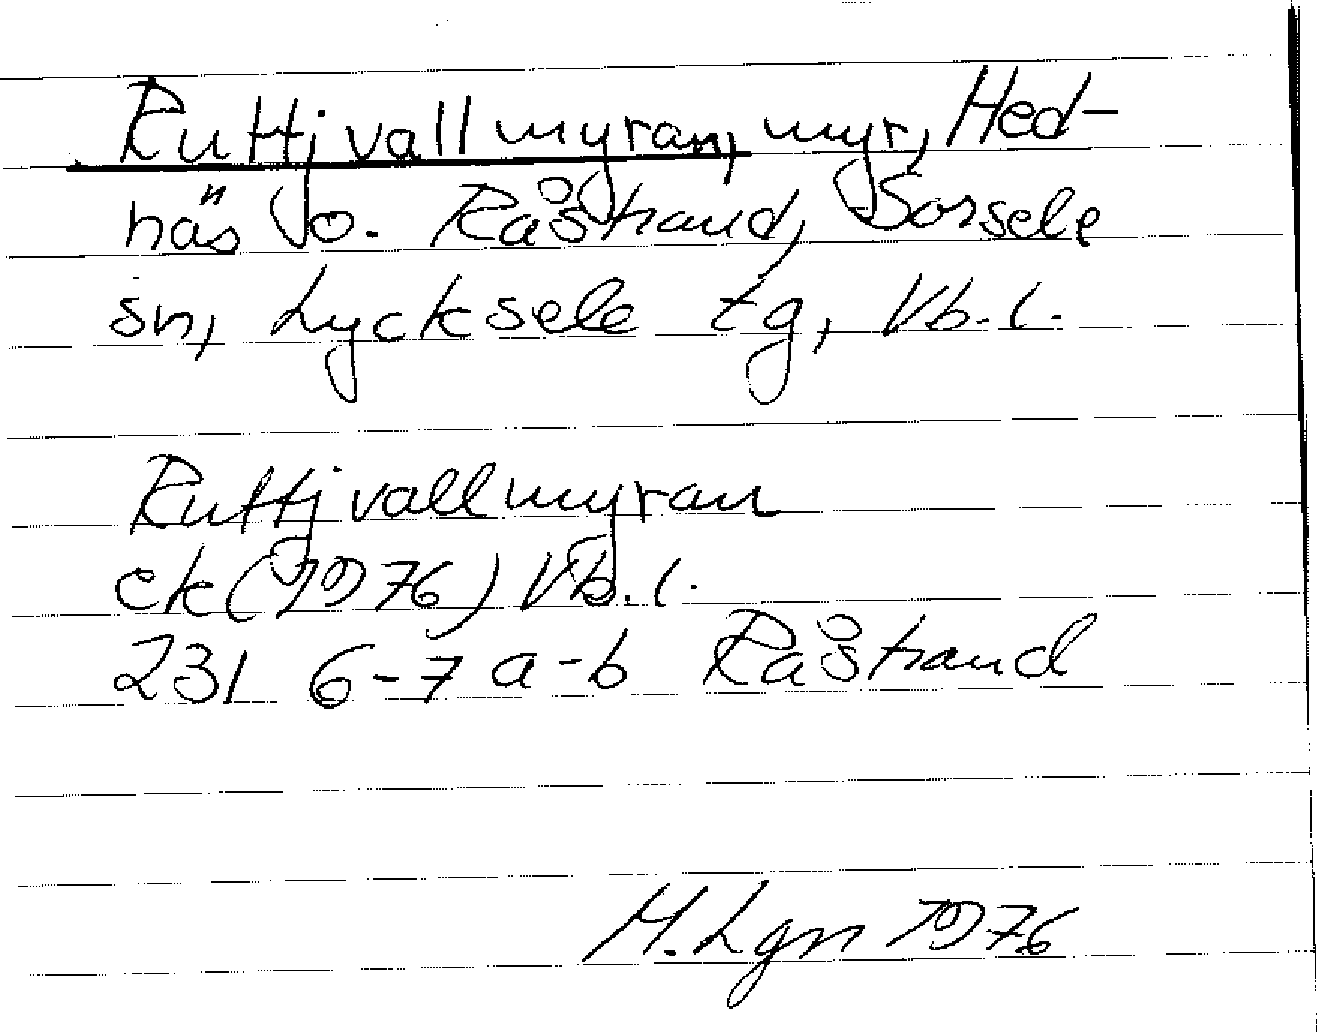 Ruttjvallmyran, myr, Hed-
näs o. Råstrand, Sorsele
sn, Lycksele tg, Vb.l.
Ruttjvallmyran
ek (1976) Vb.l.
23I 6-7 a-b Råstrand
H. Lgn 1976